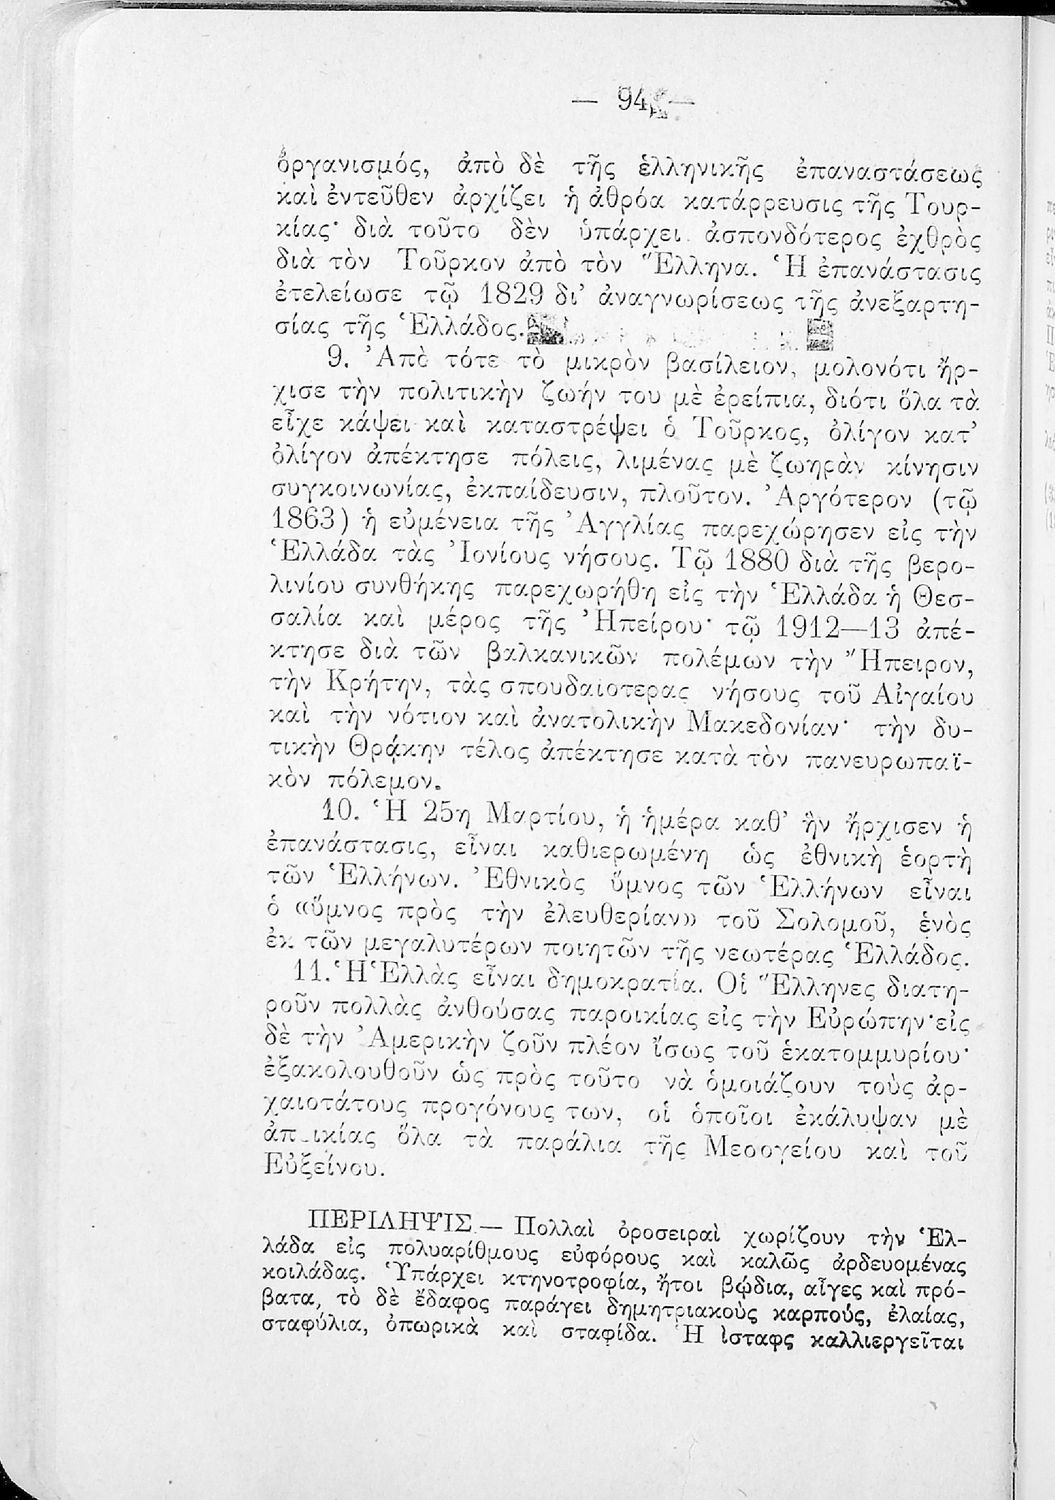 — 94 —
ὀργανισμός, ἀπὸ δὲ τῆς ἑλληνικῆς ἐπαναστάσεως
καὶ ἐντεῦθεν ἀρχίζει ἡ ἀθρόα κατάρρευσις τῆς Τουρ-
κίας· διὰ τοῦτο δὲν ὑπάρχει ἀσπονδότερος ἐχθρὸς
διὰ τὸν Τοῦρκον ἀπὸ τὸν Ἕλληνα. Ἡ ἐπανάστασις
ἐτελείωσε τῷ 1829 δι’ ἀναγνωρίσεως τῆς ἀνεξαρτη-
σίας τῆς Ἑλλάδος.
9. Ἀπὸ τότε τὸ μικρὸν βασίλειον, μολονότι ἤρ-
χισε τὴν πολιτικὴν ζωήν του μὲ ἐρείπια, διότι ὅλα τὰ
εἶχε κάψει καὶ καταστρέψει ὁ Τοῦρκος, ὀλίγον κατ’
ὀλίγον ἀπέκτησε πόλεις, λιμένας μὲ ζωηρὰν κίνησιν
συγκοινωνίας, ἐκπαίδευσιν, πλοῦτον. Ἀργότερον (τῷ
1863) ἡ εὐμένεια τῆς Ἀγγλίας παρεχώρησεν εἰς τὴν
Ἑλλάδα τὰς Ἰονίους νήσους. Τῷ 1880 διὰ τῆς βερο-
λινίου συνθήκης παρεχωρήθη εἰς τὴν Ἑλλάδα ἡ Θεσ-
σαλία καὶ μέρος τῆς Ἠπείρου· τῷ 1912—13 ἀπέ-
κτησε διὰ τῶν βαλκανικῶν πολέμων τὴν Ἤπειρον,
τὴν Κρήτην, τὰς σπουδαιοτερας νήσους τοῦ Αἰγαίου
καὶ τὴν νότιον καὶ ἀνατολικὴν Μακεδονίαν· τὴν δυ-
τικὴν Θράκην τέλος ἀπέκτησε κατὰ τὸν πανευρωπαϊ-
κὸν πόλεμον.
10. Ἡ 25η Μαρτίου, ἡ ἡμέρα καθ’ ἣν ἤρχισεν ἡ
ἐπανάστασις, εἶναι καθιερωμένη ὡς ἐθνικὴ ἑορτὴ
τῶν Ἑλλήνων. Ἐθνικὸς ὕμνος τῶν Ἑλλήνων εἶναι
ὁ «ὕμνος πρὸς τὴν ἐλευθερίαν» τοῦ Σολομοῦ, ἑνὸς
ἐκ τῶν μεγαλυτέρων ποιητῶν τῆς νεωτέρας Ἑλλάδος.
11. Ἡ Ἑλλὰς εἶναι δημοκρατία. Οἱ Ἕλληνες διατη-
ροῦν πολλὰς ἀνθούσας παροικίας εἰς τὴν Εὐρώπην· εἰς
δὲ τὴν Ἀμερικὴν ζοῦν πλέον ἴσως τοῦ ἑκατομμυρίου·
ἐξακολουθοῦν ὡς πρὸς τοῦτο νὰ ὁμοιάζουν τοὺς ἀρ-
χαιοτάτους προγόνους των, οἱ ὁποῖοι ἐκάλυψαν μὲ
ἀποικίας ὅλα τὰ παράλια τῆς Μεσογείου καὶ τοῦ
Εὐξείνου.
ΠΕΡΙΛΗΨΙΣ — Πολλαὶ ὀροσειραὶ χωρίζουν τὴν Ἑλ-
λάδα εἰς πολυαρίθμους εὐφόρους καὶ καλῶς ἀρδευομένας
κοιλάδας. Ὑπάρχει κτηνοτροφία, ἤτοι βῴδια, αἶγες καὶ πρό-
βατα, τὸ δὲ ἔδαφος παράγει δημητριακοὺς καρπούς, ἐλαίας,
σταφύλια, ὀπωρικὰ καὶ σταφίδα. Ἡ ἰσταφς καλλιεργεῖται